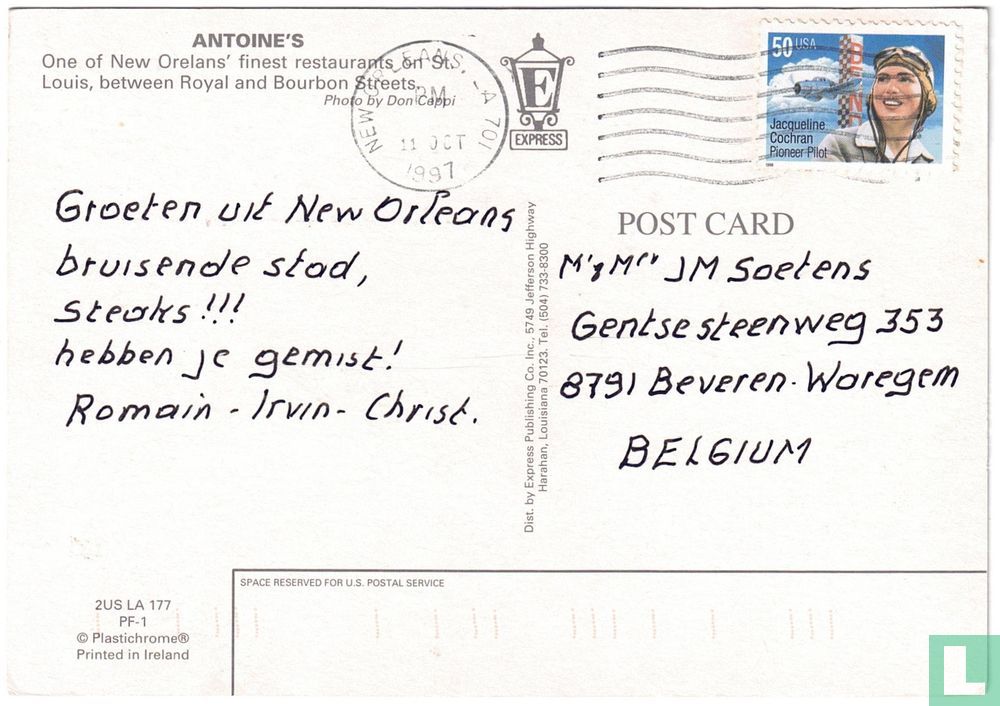 ANTOINE'S
One of New Orelans' finest restaurants on St.
Louis, between Royal and Bourbon Streets.
Photo by Don Cappi
NEW ORLEANS, LA 701
PM
11 OCT
1997
E
EXPRESS
50 USA
BENDIX
Jacqueline
Cochran
Pioneer Pilot
1996
Groeten uit New Orleans
bruisende stad,
Steaks!!!
hebben je gemist!
Romain - Irvin - Christ.
Dist. by Express Publishing Co., Inc., 5749 Jefferson Highway
Harahan, Louisiana 70123. Tel. (504) 733-8300
POST CARD
JM Soetens
Gentsesteenweg 353
8791 Beveren-Waregem
BELGIUM
SPACE RESERVED FOR U.S. POSTAL SERVICE
2US LA 177
PF-1
© Plastichrome®
Printed in Ireland
L